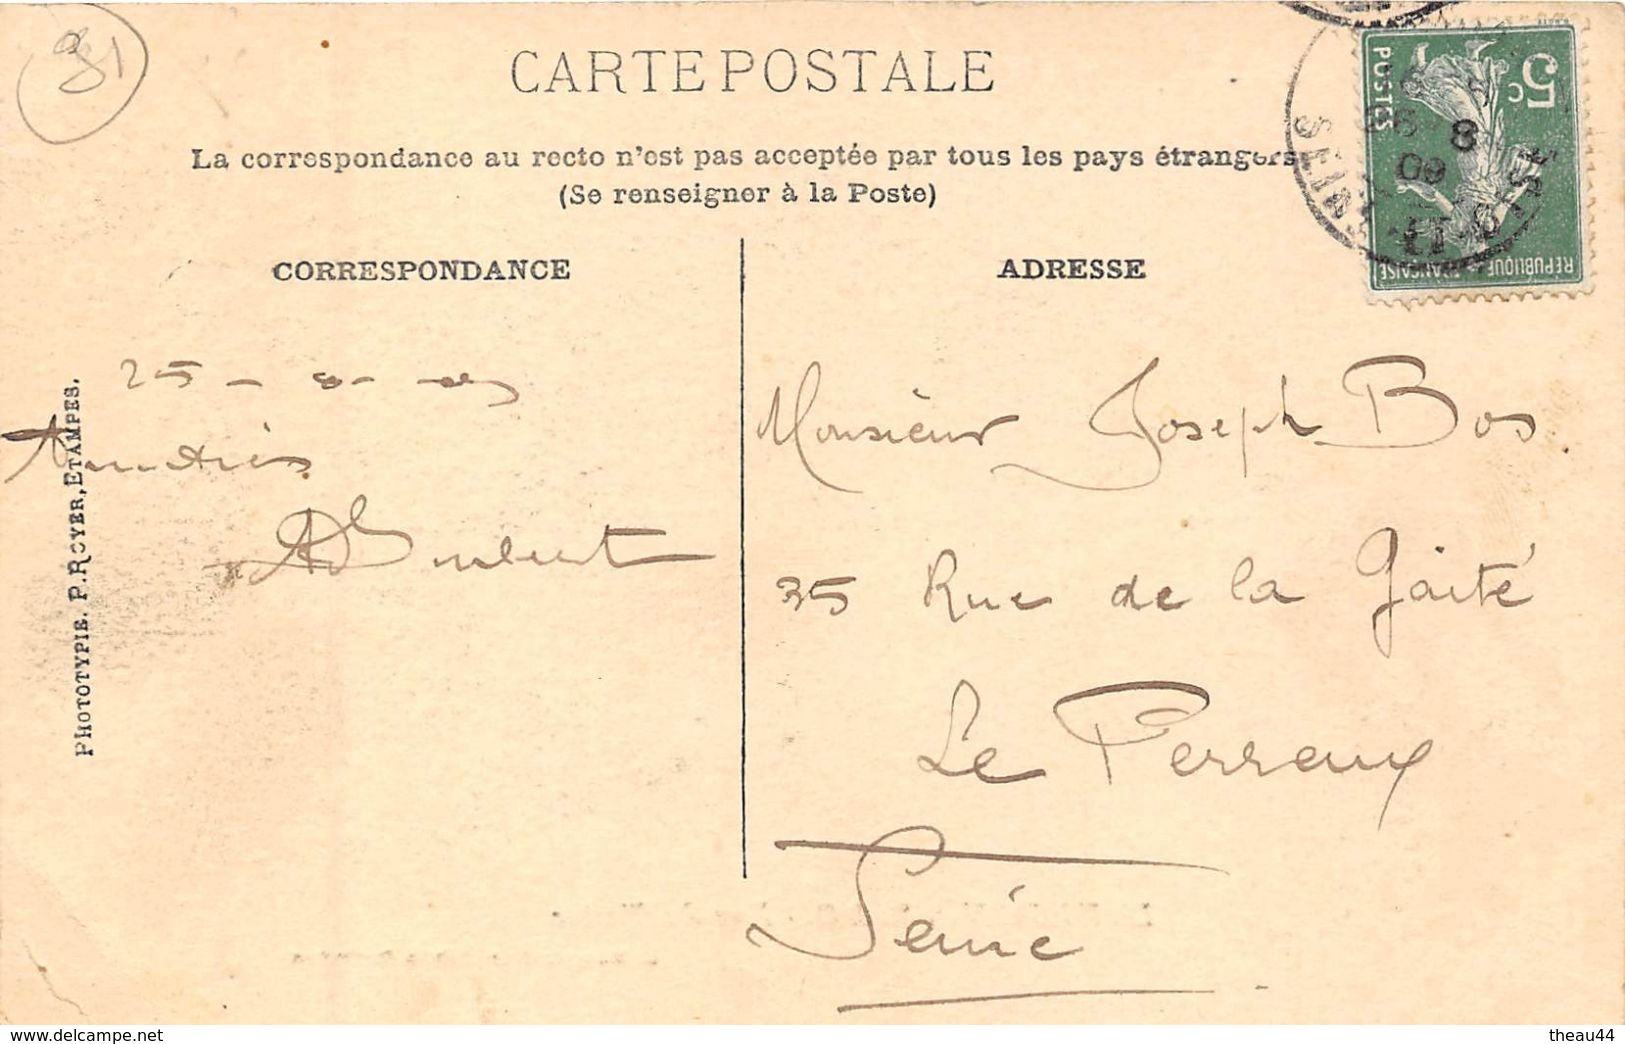 91
CARTE POSTALE
La correspondance au recto n'est pas acceptée par tous les pays étrangers
(Se renseigner à la Poste)
CORRESPONDANCE
ADRESSE
5c
POSTES
RÉPUBLIQUE FRANÇAISE
8
09
25 - 8 - 09
Amitiés
PHOTOTYPIE. P. ROYER, ETAMPES.
Monsieur Joseph Bos
35 Rue de la Gaité
Le Perreux
Seine
www.delcampe.net
theau44